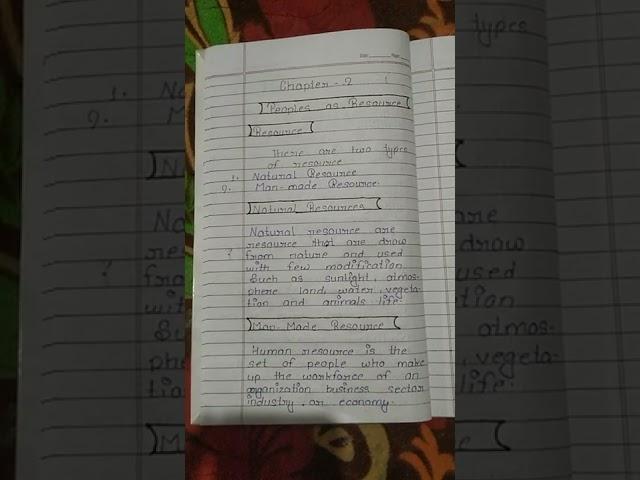 Chapter - 2
Peoples as Resource
Resource
There are two types
of resource
1. Natural Resource
2. Man-made Resource.
Natural Resources
Natural resource are
resource that are drow
? from nature and used
with few modification.
Such as sunlight, atmos-
phere land, water, vegeta-
tion and animals life.
Man-Made Resource
Human resource is the
set of people who make
up the workforce of an
organization business sector
industry, or economy.